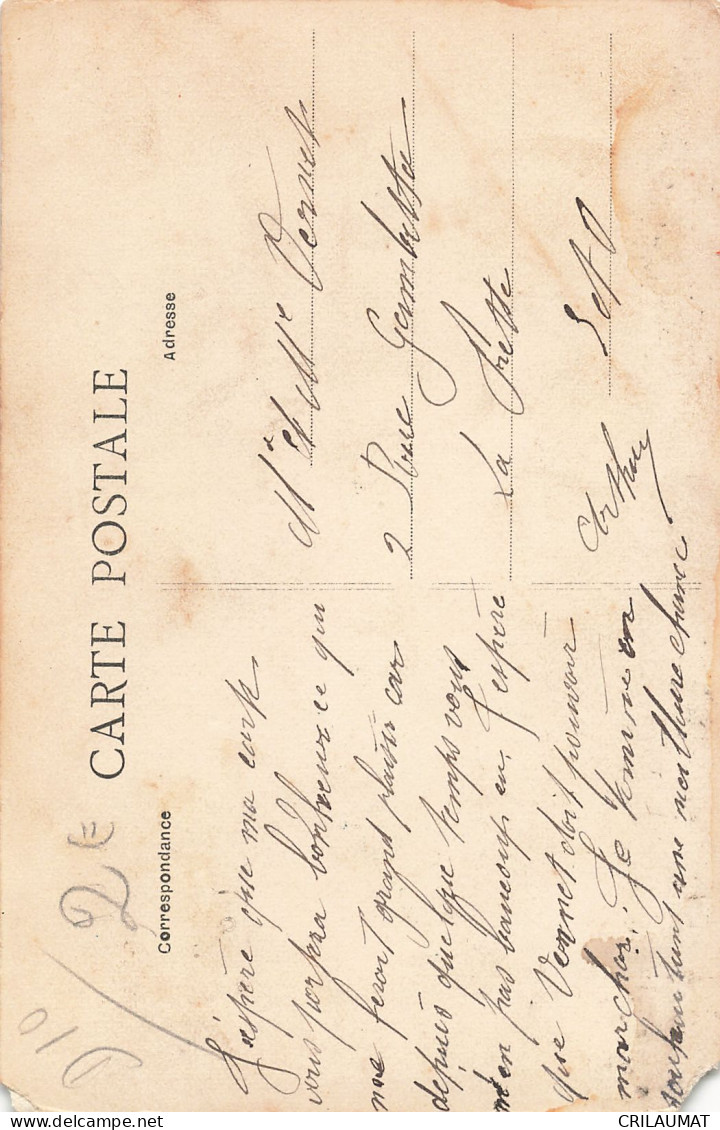 CARTE POSTALE
Correspondance
Adresse
2 E
J'espère que ma carte
vous portera bonheur ce qui
me ferait grand plaisir car
depuis quelque temps vous
n'en pas beaucoup eu. J'espère
que Vernet doit pouvoir
marcher. Je termine en
souhaitant une meilleure chance.
Arthur
Mr et Mme Vernet
2 Rue Gambetta
La Frette
S et O
CRILAUMAT